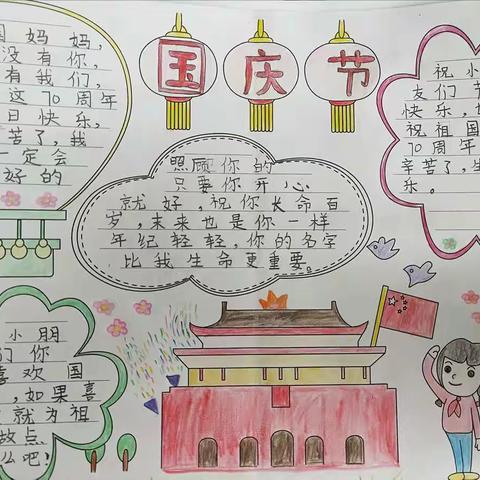 国庆节
国妈妈，
没有你，
有我们，
这70周年
日快乐，
苦了，我
一定会
好的
照顾你的
只要你开心
就好，祝你长命百
岁，未来也是你一样
年纪轻轻，你的名字
比我生命更重要。
祝小
友们节
快乐，
祝祖国
70周年
辛苦了，生
乐。
小朋
们你
喜欢国
，如果喜
就为祖
做点
么吧！